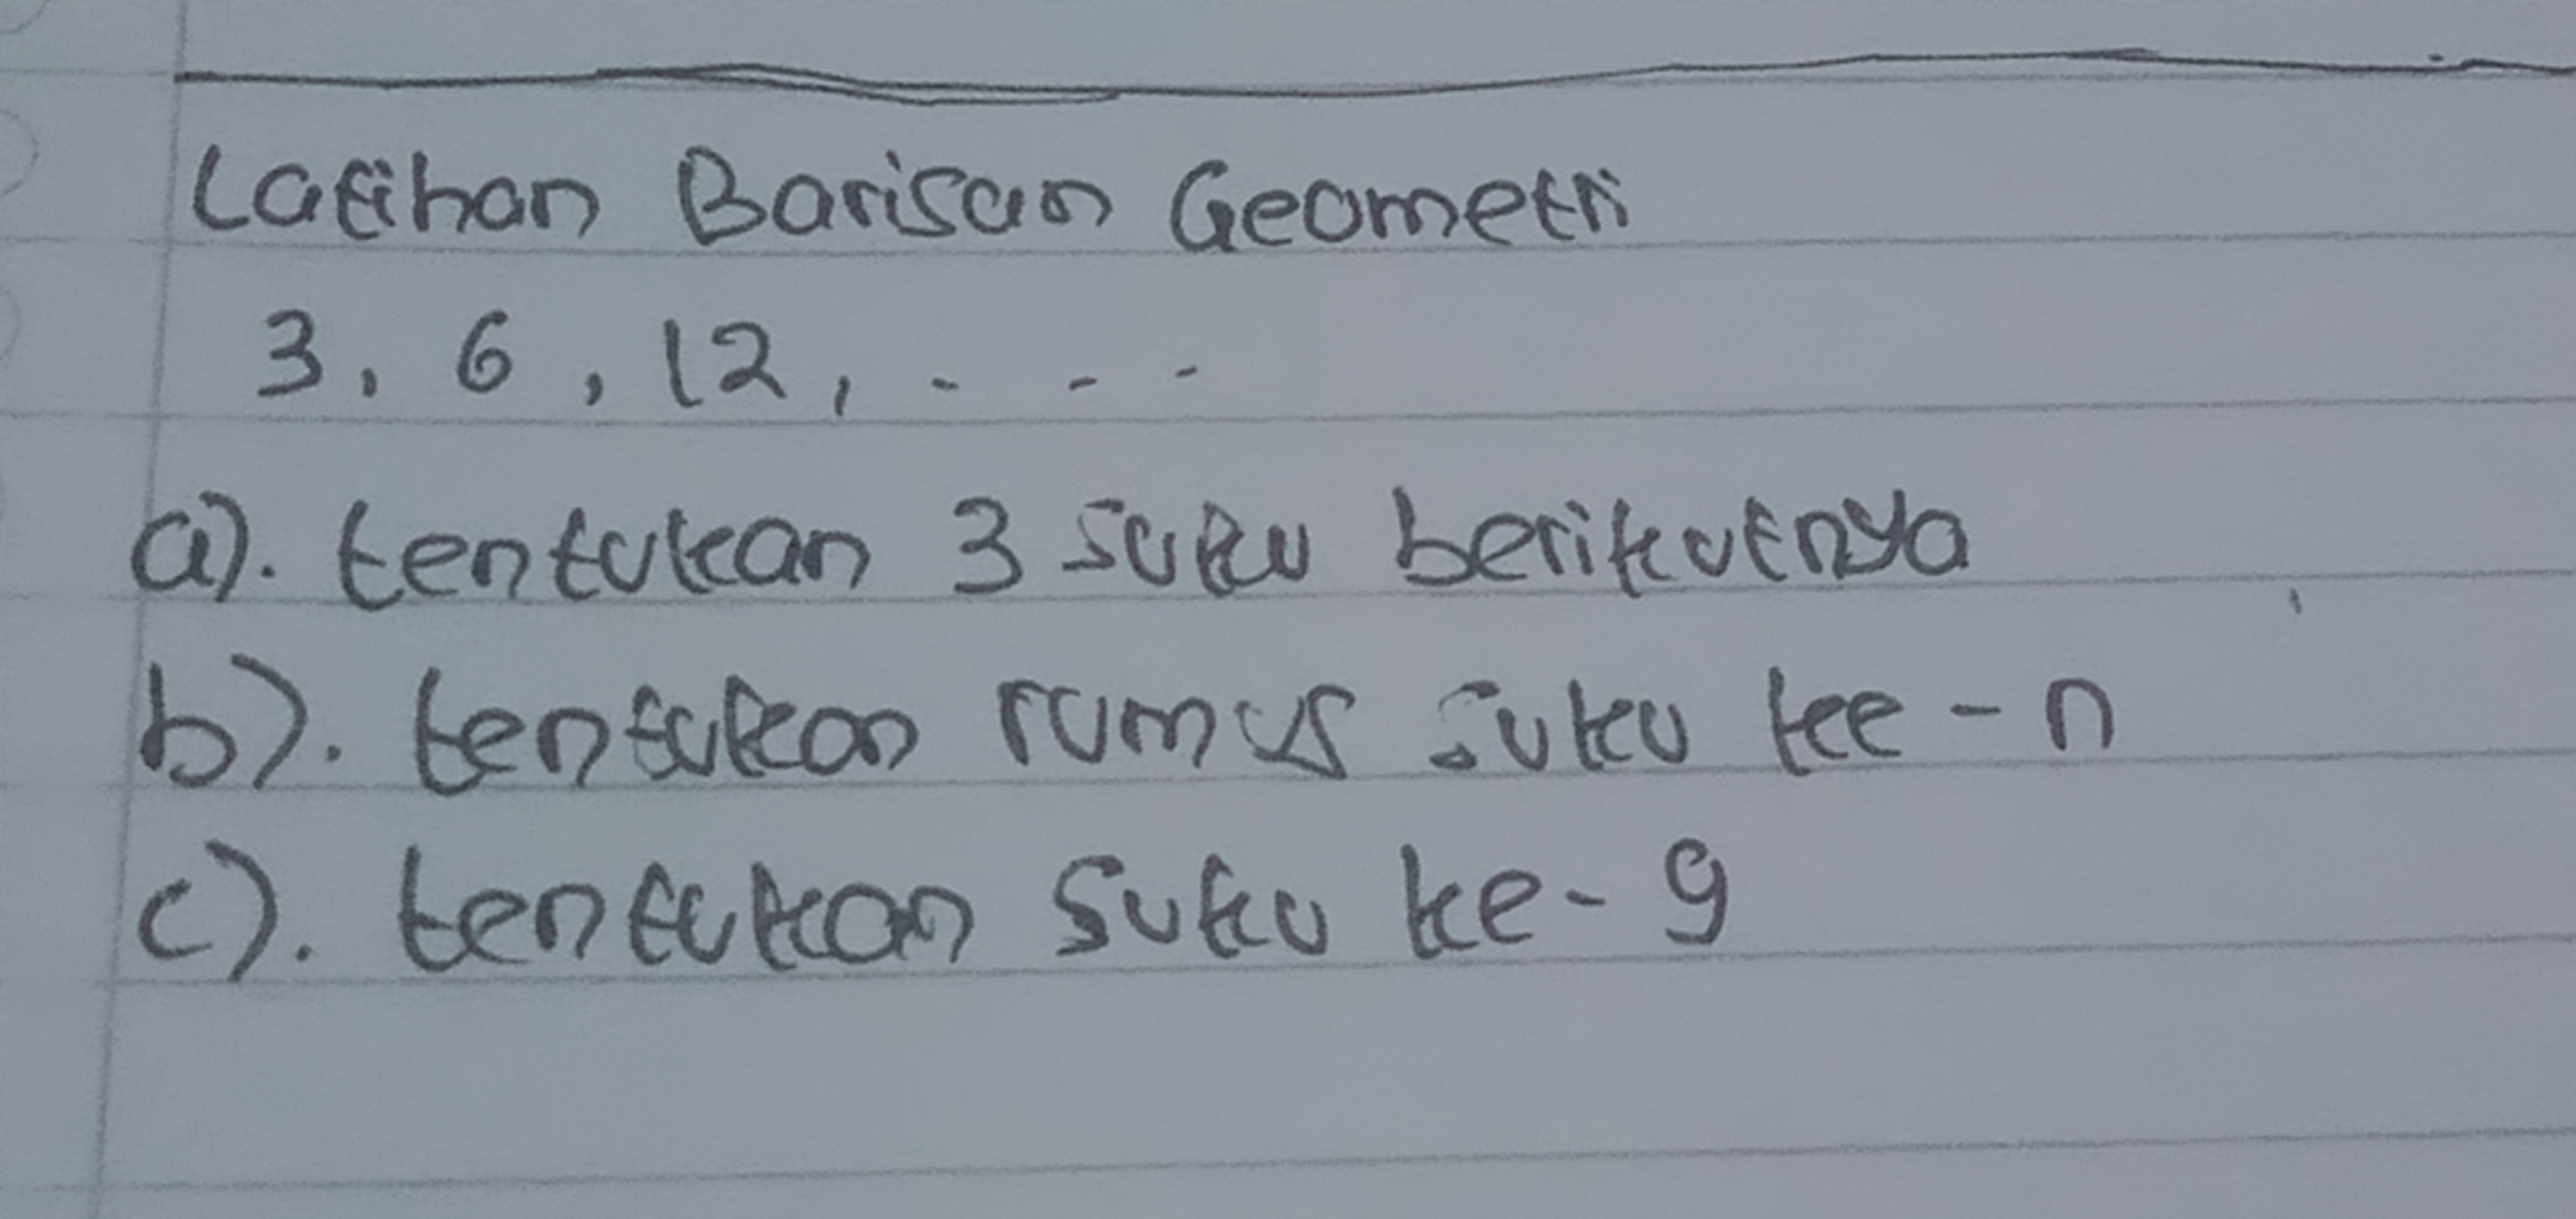 Latihan Barisan Geometri
3, 6, 12, . . .
a). tentukan 3 suku berikutnya
b). tentukan rumus suku ke-n
c). tentukan suku ke-9